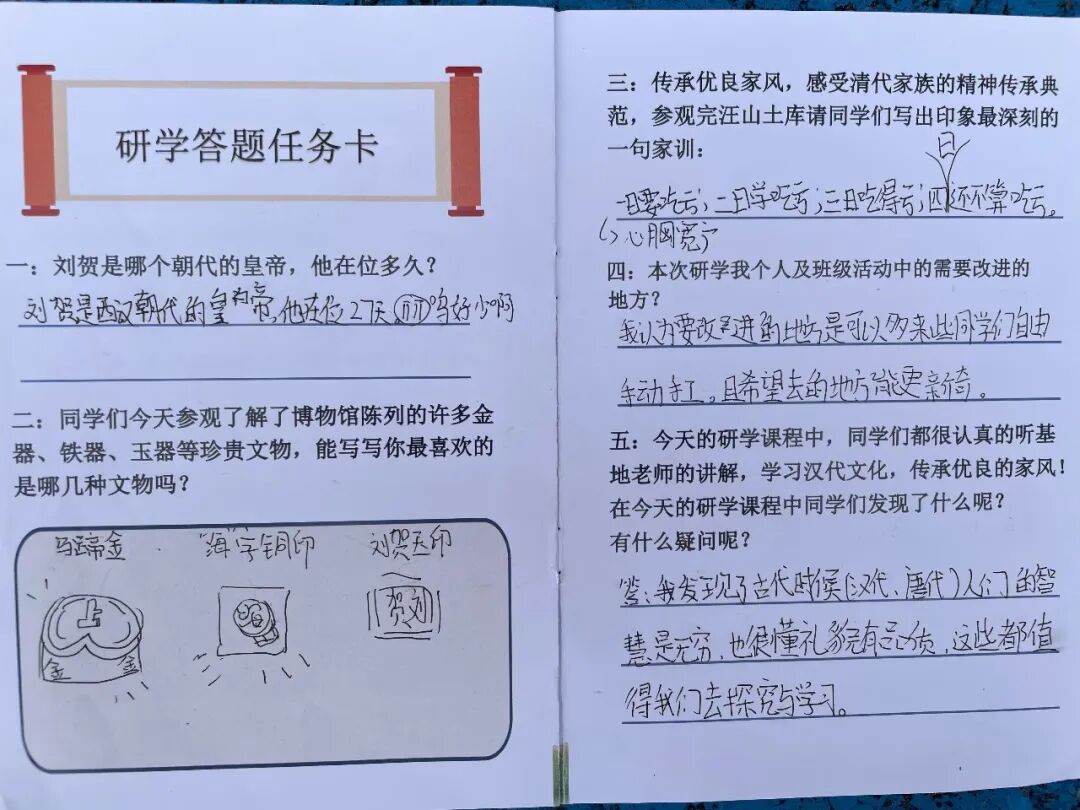 研学答题任务卡
一：刘贺是哪个朝代的皇帝，他在位多久？
刘贺是西汉朝代的皇帝,他在位27天,好少啊
二：同学们今天参观了解了博物馆陈列的许多金
器、铁器、玉器等珍贵文物，能写写你最喜欢的
是哪几种文物吗？
马蹄金 "海"字铜印 刘贺玉印
上
金 金
海
贺刘
三：传承优良家风，感受清代家族的精神传承典
范，参观完汪山土库请同学们写出印象最深刻的
一句家训：
曰
一曰要吃亏；二曰学吃亏；三曰吃得亏；四还不算吃亏。
心胸宽
四：本次研学我个人及班级活动中的需要改进的
地方？
我认为要改进的地方是可以多来些同学们自由
手动手工。且希望去的地方能更新奇。
五：今天的研学课程中，同学们都很认真的听基
地老师的讲解，学习汉代文化，传承优良的家风！
在今天的研学课程中同学们发现了什么呢？
有什么疑问呢？
答：我发现了古代时候（汉代、唐代）人们的智
慧是无穷，也很懂礼貌有品质，这些都值
得我们去探究与学习。